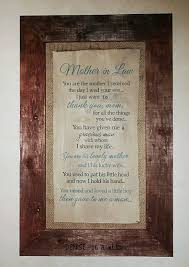 Mother in Law
You are the mother I received
the day I wed your son...
I just want to
thank you, mom,
for all the things
you've done...
You have given me a
precious man
with whom
I share my life...
You are his lovely mother
and I his lucky wife...
You used to pat his little head
and now I hold his hand...
You raised and loved a little boy
then gave to me a man.